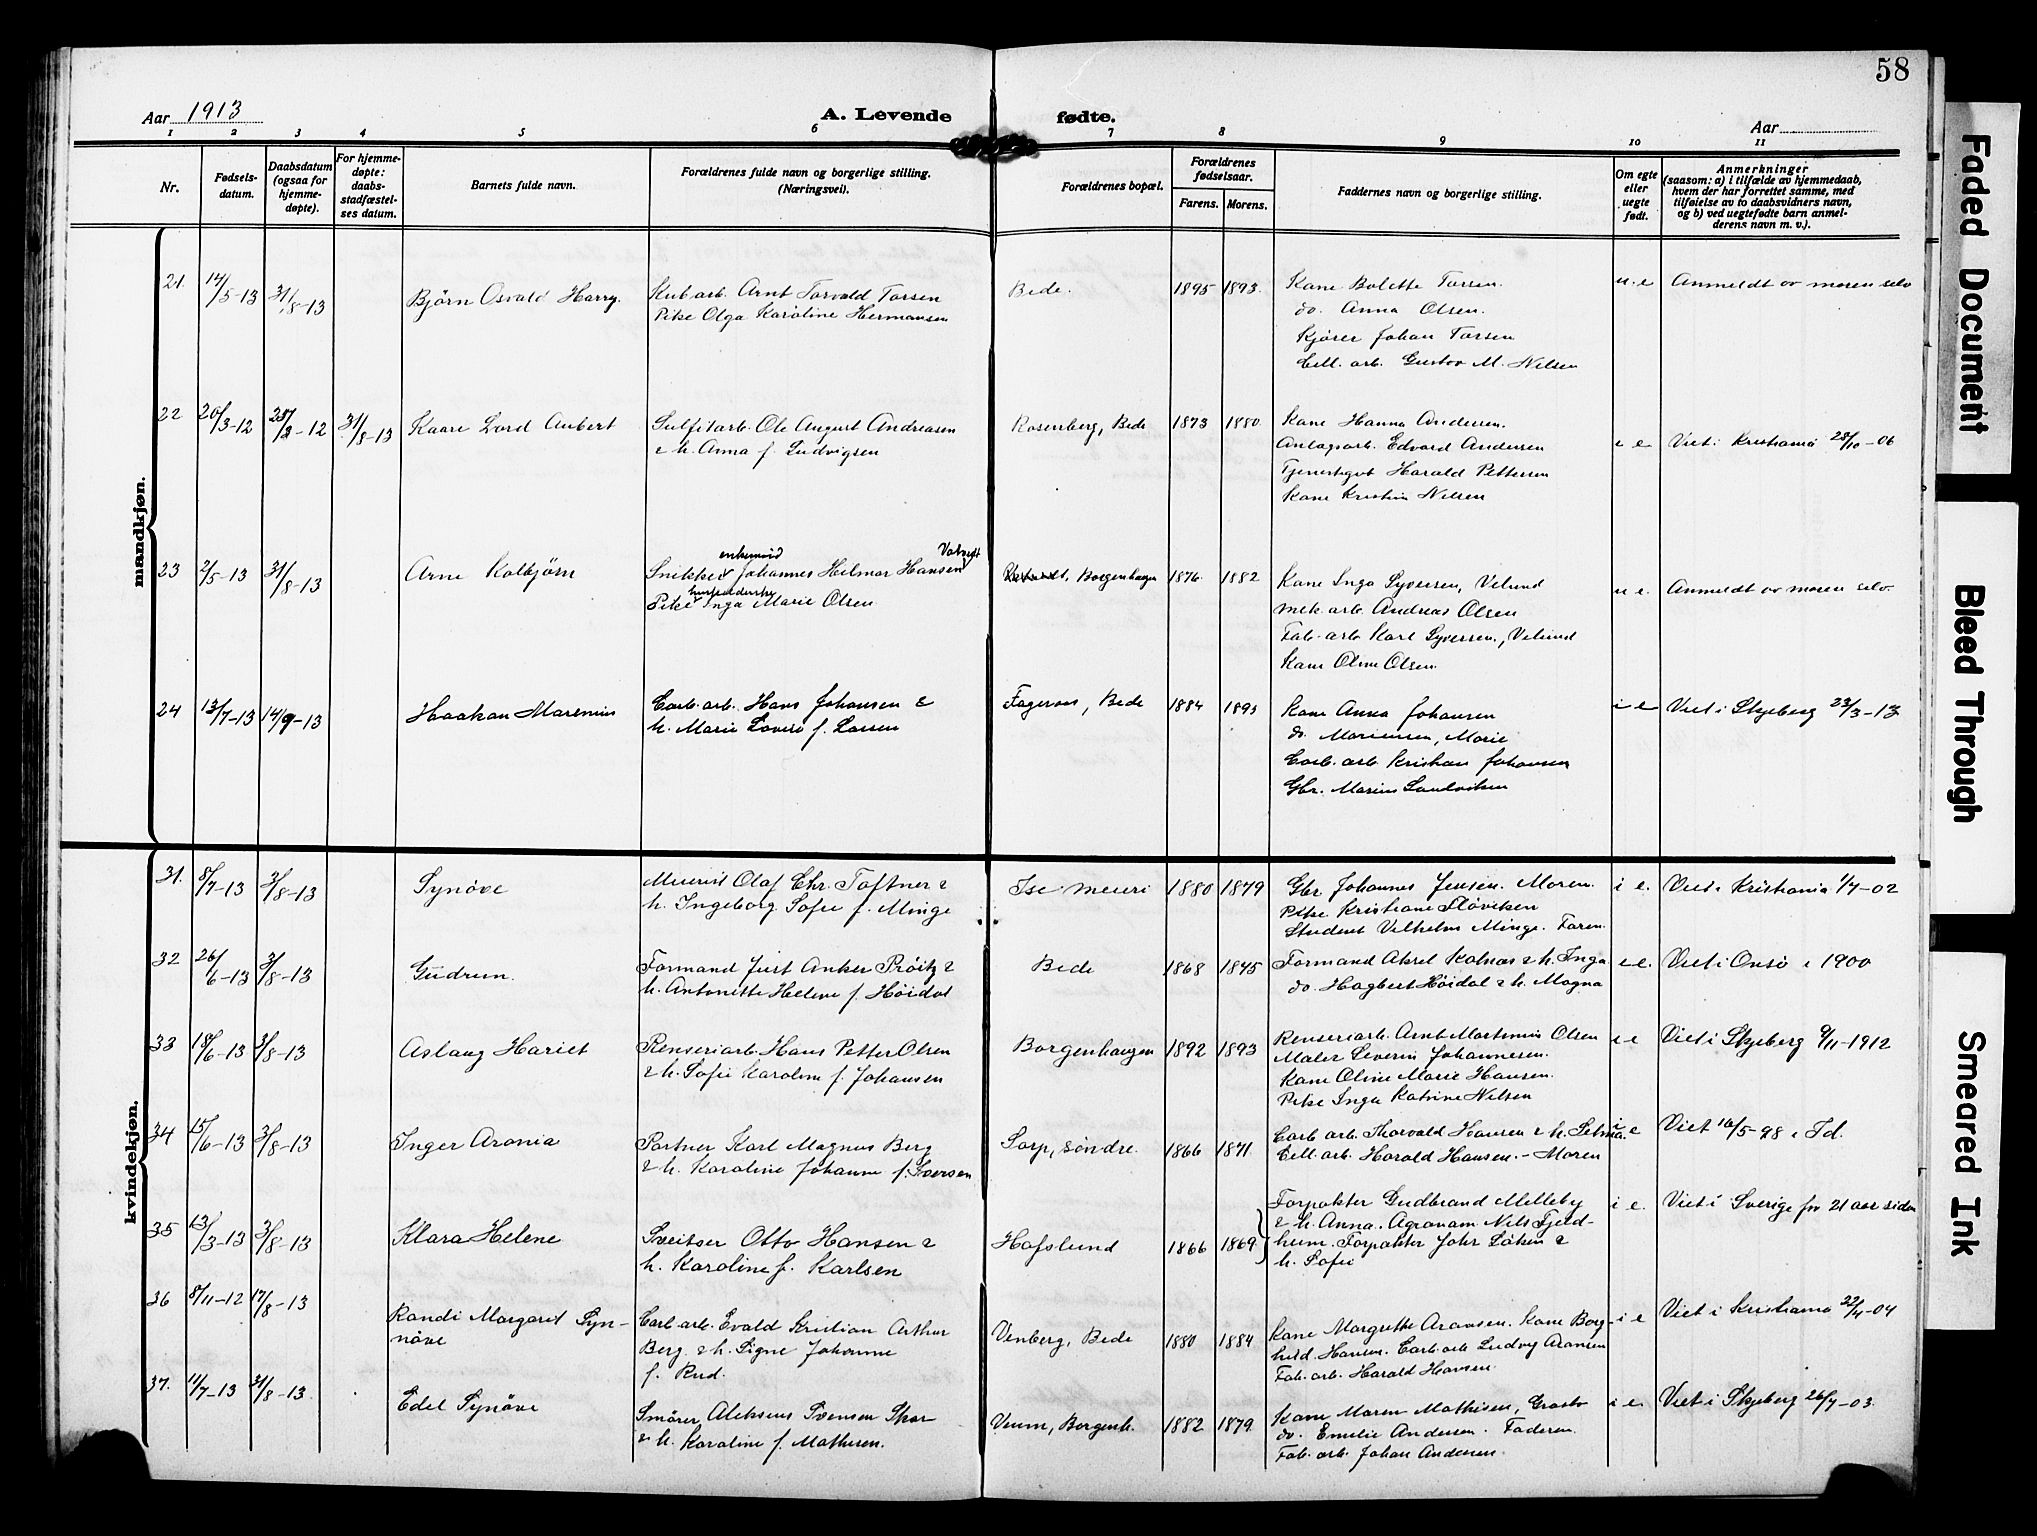 58
Aar 1913
A. Levende fødte.
Aar
1 2 3 4 5 6 7 8 9 10 11
Nr.
Fødsels-
datum.
Daabsdatum
(ogsaa for
hjemme-
døpte).
For hjemme-
døpte:
daabs-
stadfæstel-
ses datum.
Barnets fulde navn.
Forældrenes fulde navn og borgerlige stilling.
(Næringsvei).
Forældrenes bopæl.
Forældrenes
fødselsaar.
Farens. Morens.
Faddernes navn og borgerlige stilling.
Om egte
eller
uegte
født.
Anmerkninger
(saasom: a) i tilfælde av hjemmedaab,
hvem der har forrettet samme, med
tilføielse av to daabsvidners navn,
og b) ved uegtefødte barn anmel-
derens navn m. v.).
mandkjøn.
21. 14/5-13 31/8-13 Bjørn Osvald Harry. Kub.arb. Arnt Torvald Torsen Bede. 1895 1893. Kone Bolette Torsen. u.e Anmeldt av moren selv
Pike Olga Karoline Hermansen do. Anna Olsen.
Kjører Johan Torsen
Cell. arb. Gustav M. Nilsen
22 20/3-12 31/8-13 Kaare Lord Aubert Sulfitarb. Ole August Andreasen Rosenberg, Bede 1873 1880. Kone Hanna Andersen.
& h. Anna f. Ludvigsen Anlægsarb. Edvard Andersen i e Viet i Kristiania 28/10-06
Tjenestegut Harald Pettersen
Kone Kristin Nilsen
enkemand
23 2/5-13 31/8-13 Arne Kolbjørn Snikker Johannes Hilmar Hansen Borgenhaugen 1876. 1882 Kone Inga Syversen, Velund u e. Anmeldt av moren selv.
Pike Inga Marie Olsen mek. arb. Andreas Olsen
Fab. arb. Karl Syversen, Velund
Kone Oline Olsen.
24 13/7-13 14/9-13 Haakon Marenius Carb. arb. Hans Johansen & Fageraas, Bede 1884 1893 Kone Anna Johansen i e Viet i Skjeberg 23/3-13
h. Marie Lovise f. Larsen do. Mariensen, Marie
Carb. arb. Kristian Johansen
Gbr. Marius Sandviken
kvindekjøn.
31. 8/7-13 3/8-13 Synøve Meierist Olaf Chr. Toftner & Ise meieri 1880 1879 Gbr Johannes Jensen. Moren. i e. Viet i Kristiania 1/7-02
h. Ingeborg Sofie f. Minge Pike Kristiane Fløviken
Student Vilhelm Minge. Faren.
32 26/6-13 3/8-13 Gudrun. Formand Just Anker Prøitz & Bede 1868 1875 Formand Aksel Kalnæs & h. Inga i e. Viet i Onsø i 1900
h. Antonette Helene f. Høidal do. Hagbert Høidal & h. Magna
33 18/6-13 3/8-13 Aslaug Hariet Renseriarb. Hans Petter Olsen Borgenhaugen 1892 1893 Renseriarb. Arnt Martinius Olsen i e Viet i Skjeberg 9/11-1912
& h. Sofie Karoline f. Johansen Maler Severin Johannesen.
Kone Oline Marie Hansen.
Pike Inga Katrine Nilsen
34 15/6-13 3/8-13 Inger Aronia Portner Karl Magnus Berg Torp, søndre. 1866 1871 Carb. arb. Thorvald Hansen & h. Selma. i e Viet 16/5-98 i Id.
& h. Karoline Johanne f. Iversen Cell. arb. Harald Hansen. - Moren
35 13/3-13 3/8-13 Klara Helene Sveitser Otto Hansen & Hafslund 1866 1869 Forpakter Gudbrand Melleby i e. Viet i Sverige for 21 aar siden
h. Karoline f. Karlsen & h. Anna. Agronom Nils Fjeld-
heim. Forpakter Johr Løken &
h. Sofie
36 8/11-12 17/8-13 Randi Margaret Syn- Carb. arb. Evald Kristian Arthur Venberg, Bede 1880 1884 Kone Margrethe Aronsen. Kone Borg- i e Viet i Kristiania 22/4-04
nøve Berg & h. Signe Johanne hild Hansen. Carb. arb Ludvig Aronsen
f. Rud. Fab. arb. Harald Hansen.
37. 11/7-13 31/8-13. Edel Synøve Smører Aleksius Svensen Skar Veum, Borgenh. 1882 1879. Kone Maren Mathisen, Graabo i e. Viet i Skjeberg 26/7-03.
& h. Karoline f. Mathisen. do. Emelie Andersen. Faderen.
Fab. arb. Johan Andersen.
Faded Document
Bleed Through
Smeared Ink